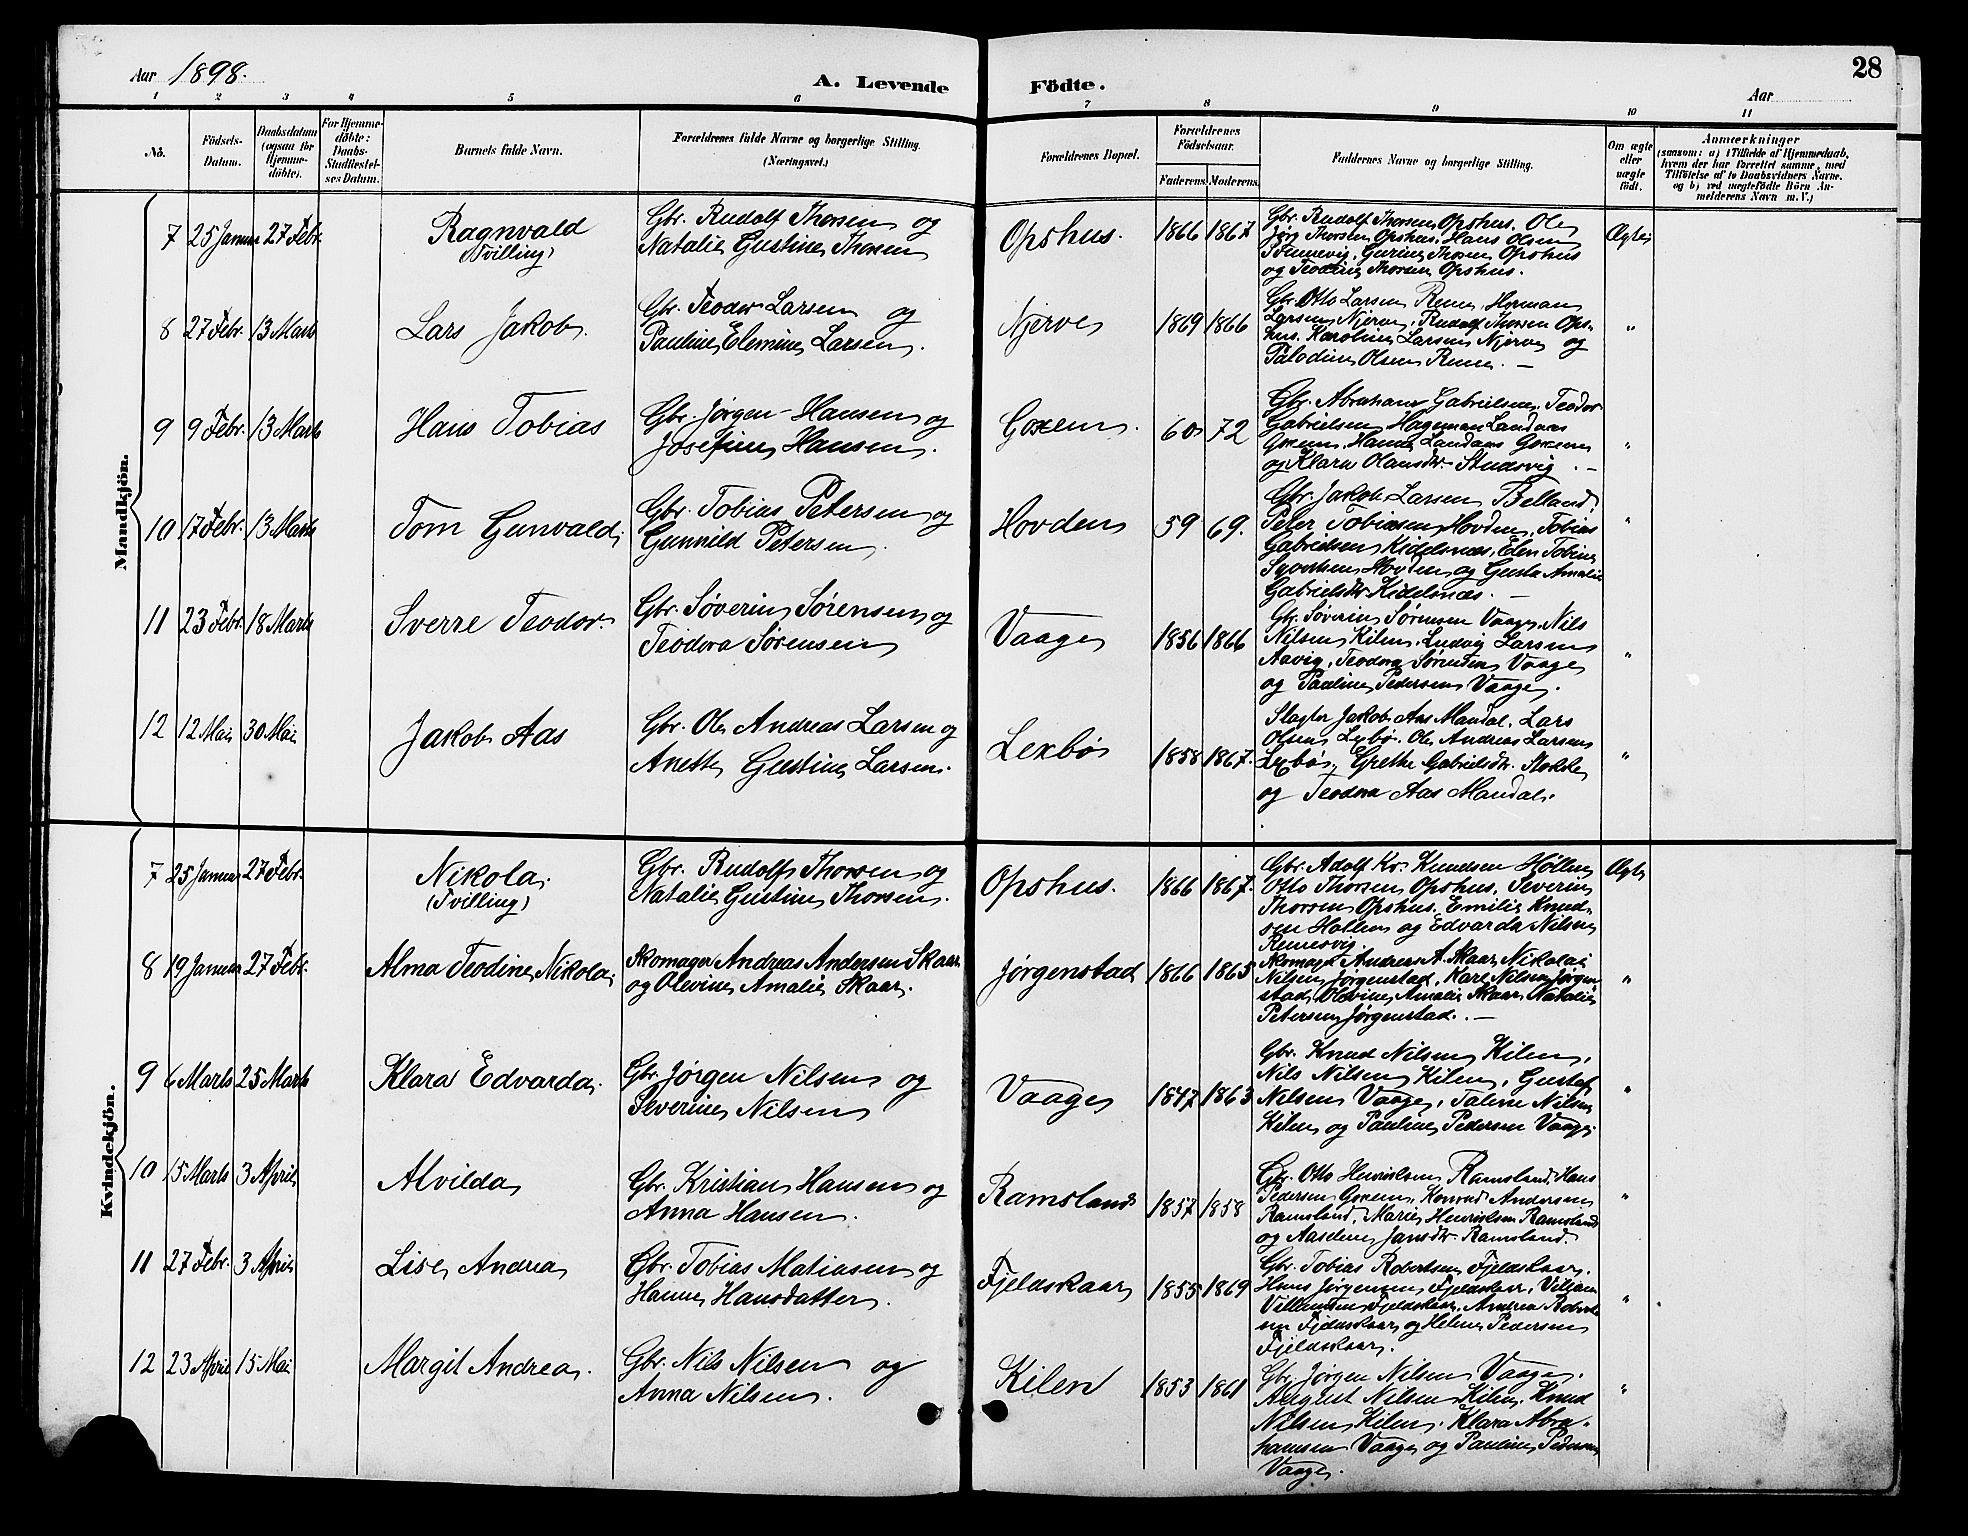 Aar 1898.
A. Levende Födte.
28
Aar
1 2 3 4 5 6 7 8 9 10 11
No.
Födsels-
Datum.
Daabsdatum
(ogsaa for
Hjemme-
döbte).
For Hjemme-
döbte:
Daabs-
Stadfæstel-
ses Datum.
Barnets fulde Navn.
Forældrenes fulde Navne og borgerlige Stilling.
(Næringsvei.)
Forældrenes Bopæl.
Forældrenes
Födselsaar.
Faderens. Moderens.
Faddernes Navne og borgerlige Stilling.
Om ægte
eller
uægte
födt.
Anmærkninger
(saasom: a) i Tilfælde af Hjemmedaab,
hvem der har forrettet samme, med
Tilföielse af to Daabsvidners Navne.
og b) ved uægtefödte Börn An-
melderens Navn m. V.)
Mandkjön.
7 25 Januar 27 Febr.
Ragnvald
(Tvilling)
Gbr. Rudolf Thorsen og
Natalie Gustine Thorsen
Opshus.
1866 1867
Gbr. Rudolf Thorsen Opshus. Ole
Jørg Thorsen Opshus. Hans Olsen
Gurine Thorsen Opshus
og Teodine Thorsen Opshus.
Ægte
8 27 Febr. 13 Marts
Lars Jakob.
Gbr. Teodor Larsen og
Pauline Elemine Larsen.
Njerve
1869 1866
Gbr. Otto Larsen Rene. Herman
Larsen Njerve. Rudolf Thorsen Ops-
hus. Karoline Larsen Njerve og
Palodine Olsen Rene. –
"
9 9 Febr. 13 Marts
Hans Tobias
Gbr. Jørgen Hansen og
Josefine Hansen.
Goxem.
60 72
Gbr. Abraham Gabrielsen. Teodor
Gabrielsen Hageman Landaas
Goxem. Hanne Landaas Goxem
og Klara Olausdtr. Studsvig. –
"
10 17 Febr. 13 Marts
Tom Gunvald.
Gbr. Tobias Petersen og
Gunnild Petersen.
Hovden
59 69.
Gbr. Jakob Larsen Belland.
Peter Tobiasen Hovden, Tobias
Gabrielsen Kidelsnæs, Elen Tobine
Syvertsen Hovden og Gusta Amalie
Gabrielsdtr Kidelsnæs. –
"
11 23 Febr. 18 Marts
Sverre Teodor.
Gbr. Søverin Sørensen og
Teodora Sørensen
Vaage
1856 1866
Gbr. Søverin Sørensen Vaage. Nils
Nilsen Kilen. Ludvig Larsen
Aavig. Teodora Sørensen Vaage
og Pauline Pedersen Vaage.
"
12 12 Mai 30 Mai
Jakob Aas
Gbr. Ole Andreas Larsen og
Anette Gustine Larsen.
Lexbø
1858 1867.
Slagter Jakob Aas Mandal. Lars
Olsen Lexbø. Ole Andreas Larsen
Lexbø. Grethe Gabrielsdtr. Stokke
og Teodora Aas Mandal.
"
Kvindekjön.
7 25 Januar 27 Febr.
Nikolai
(Tvilling)
Gbr. Rudolf Thorsen og
Natalie Gustine Thorsen.
Opshus.
1866 1867.
Gbr. Adolf Kr. Knudsen Høllen
Otto Thorsen Opshus. Severin
Thorsen Opshus. Emilie Knud-
sen Hollen og Edvarda Nilsen
Rennesvig.
Ægte
8 19 Januar 27 Febr.
Alma Teodine Nikolai
Skomager Andreas Andersen Skaar
og Olevine Amalie Skaar.
Jørgenstad
1866 1865
Skomager Andreas A. Skaar, Nikolai
Nilsen Jørgenstad. Karl Nilsen Jørgen
stad, Olevine Amalie Skaar, Natalie
Petersen Jørgenstad. –
"
9 6 Marts 25 Marts
Klara Edvarda.
Gbr. Jørgen Nilsen og
Severine Nilsen
Vaage
1847 1863
Gbr. Knud Nilsen Kilen,
Nils Nilsen Kilen, Gustaf
Nilsen Vaage, Taline Nilsen
Kilen og Pauline Pedersen Vaage.
"
10 15 Marts 3 April
Alvilda
Gbr. Kristian Hansen og
Anna Hansen.
Ramsland
1857 1858
Gbr. Otto Henriksen Ramsland. Hans
Pedersen Goxem. Konrad Andersen
Ramsland. Marie Henriksen Ramsland
og Aaseline Jansdtr. Ramsland.
"
11 27 Febr. 3 April
Lise Andrea
Gbr. Tobias Matiasen og
Hanne Hansdatter.
Fjeldskaar
1855 1869
Gbr. Tobias Robertsen Fjeldskaar.
Hans Jørgensen Fjeldskaar, Villum
Villumsen Fjeldskaar, Andrea Roberts
sen Fjeldskaar og Helene Pedersen
Fjeldskaar.
"
12 23 April 15 Mai
Margit Andrea.
Gbr. Nils Nilsen og
Anna Nilsen.
Kilen
1853 1861
Gbr. Jørgen Nilsen Vaage.
August Nilsen Kilen. Knud
Nilsen Kilen. Klara Abra-
hamsen Vaage og Pauline Pedersen
Vaage.
"